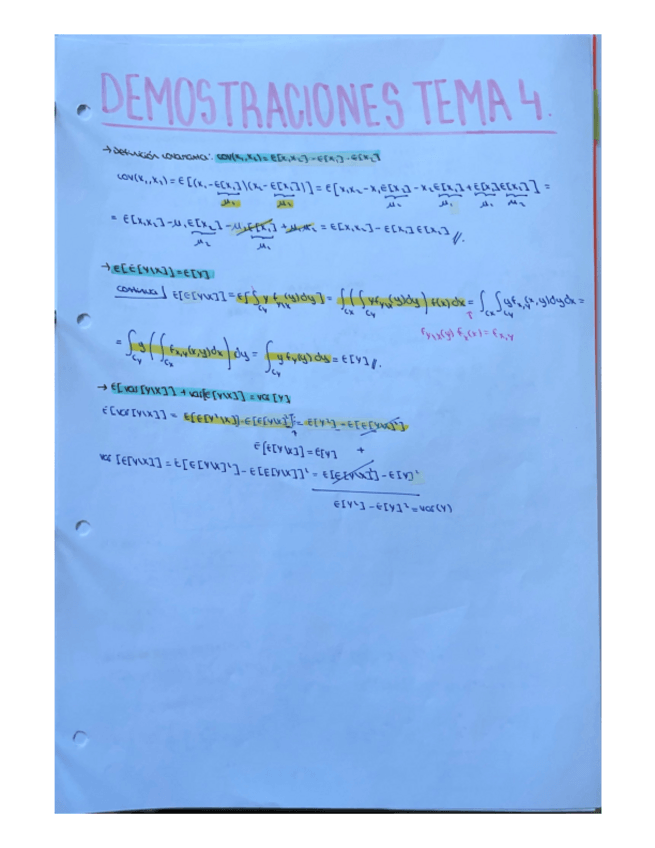 DEMOSTRACIONES TEMA 4.
→ Definición covarianza: cov(x₁,x₂) = E[x₁x₂] - E[x₁]·E[x₂]
cov(x₁,x₂) = E[(x₁-E[x₁])(x₂-E[x₂])] = E[x₁x₂ - x₁E[x₂] - x₂E[x₁] + E[x₁]E[x₂]] =
μ₁ μ₂ μ₂ μ₁ μ₁ μ₂
= E[x₁x₂] - μ₁E[x₂] - μ₂E[x₁] + μ₁μ₂ = E[x₁x₂] - E[x₁]E[x₂] //.
μ₂ μ₁
→ E[E[Y|X]] = E[Y]
continua | E[E[Y|X]] = E[∫_{C_Y} y f_{Y|X}(y)dy] = ∫_{C_X} (∫_{C_Y} y f_{Y|X}(y)dy) f(x)dx = ∫_{C_X} ∫_{C_Y} y f_{X,Y}(x,y)dydx =
f_{Y|X}(y) f_X(x) = f_{X,Y}
= ∫_{C_Y} y (∫_{C_X} f_{X,Y}(x,y)dx) dy = ∫_{C_Y} y f_Y(y) dy = E[Y] //.
→ E[Var[Y|X]] + Var[E[Y|X]] = Var[Y]
E[Var[Y|X]] = E[E[Y²|X]] - E[E[Y|X]²] = E[Y²] - E[E[Y|X]²]
E[E[Y|X]] = E[Y] +
Var[E[Y|X]] = E[E[Y|X]²] - E[E[Y|X]]² = E[E[Y|X]²] - E[Y]²
E[Y²] - E[Y]² = Var(Y)